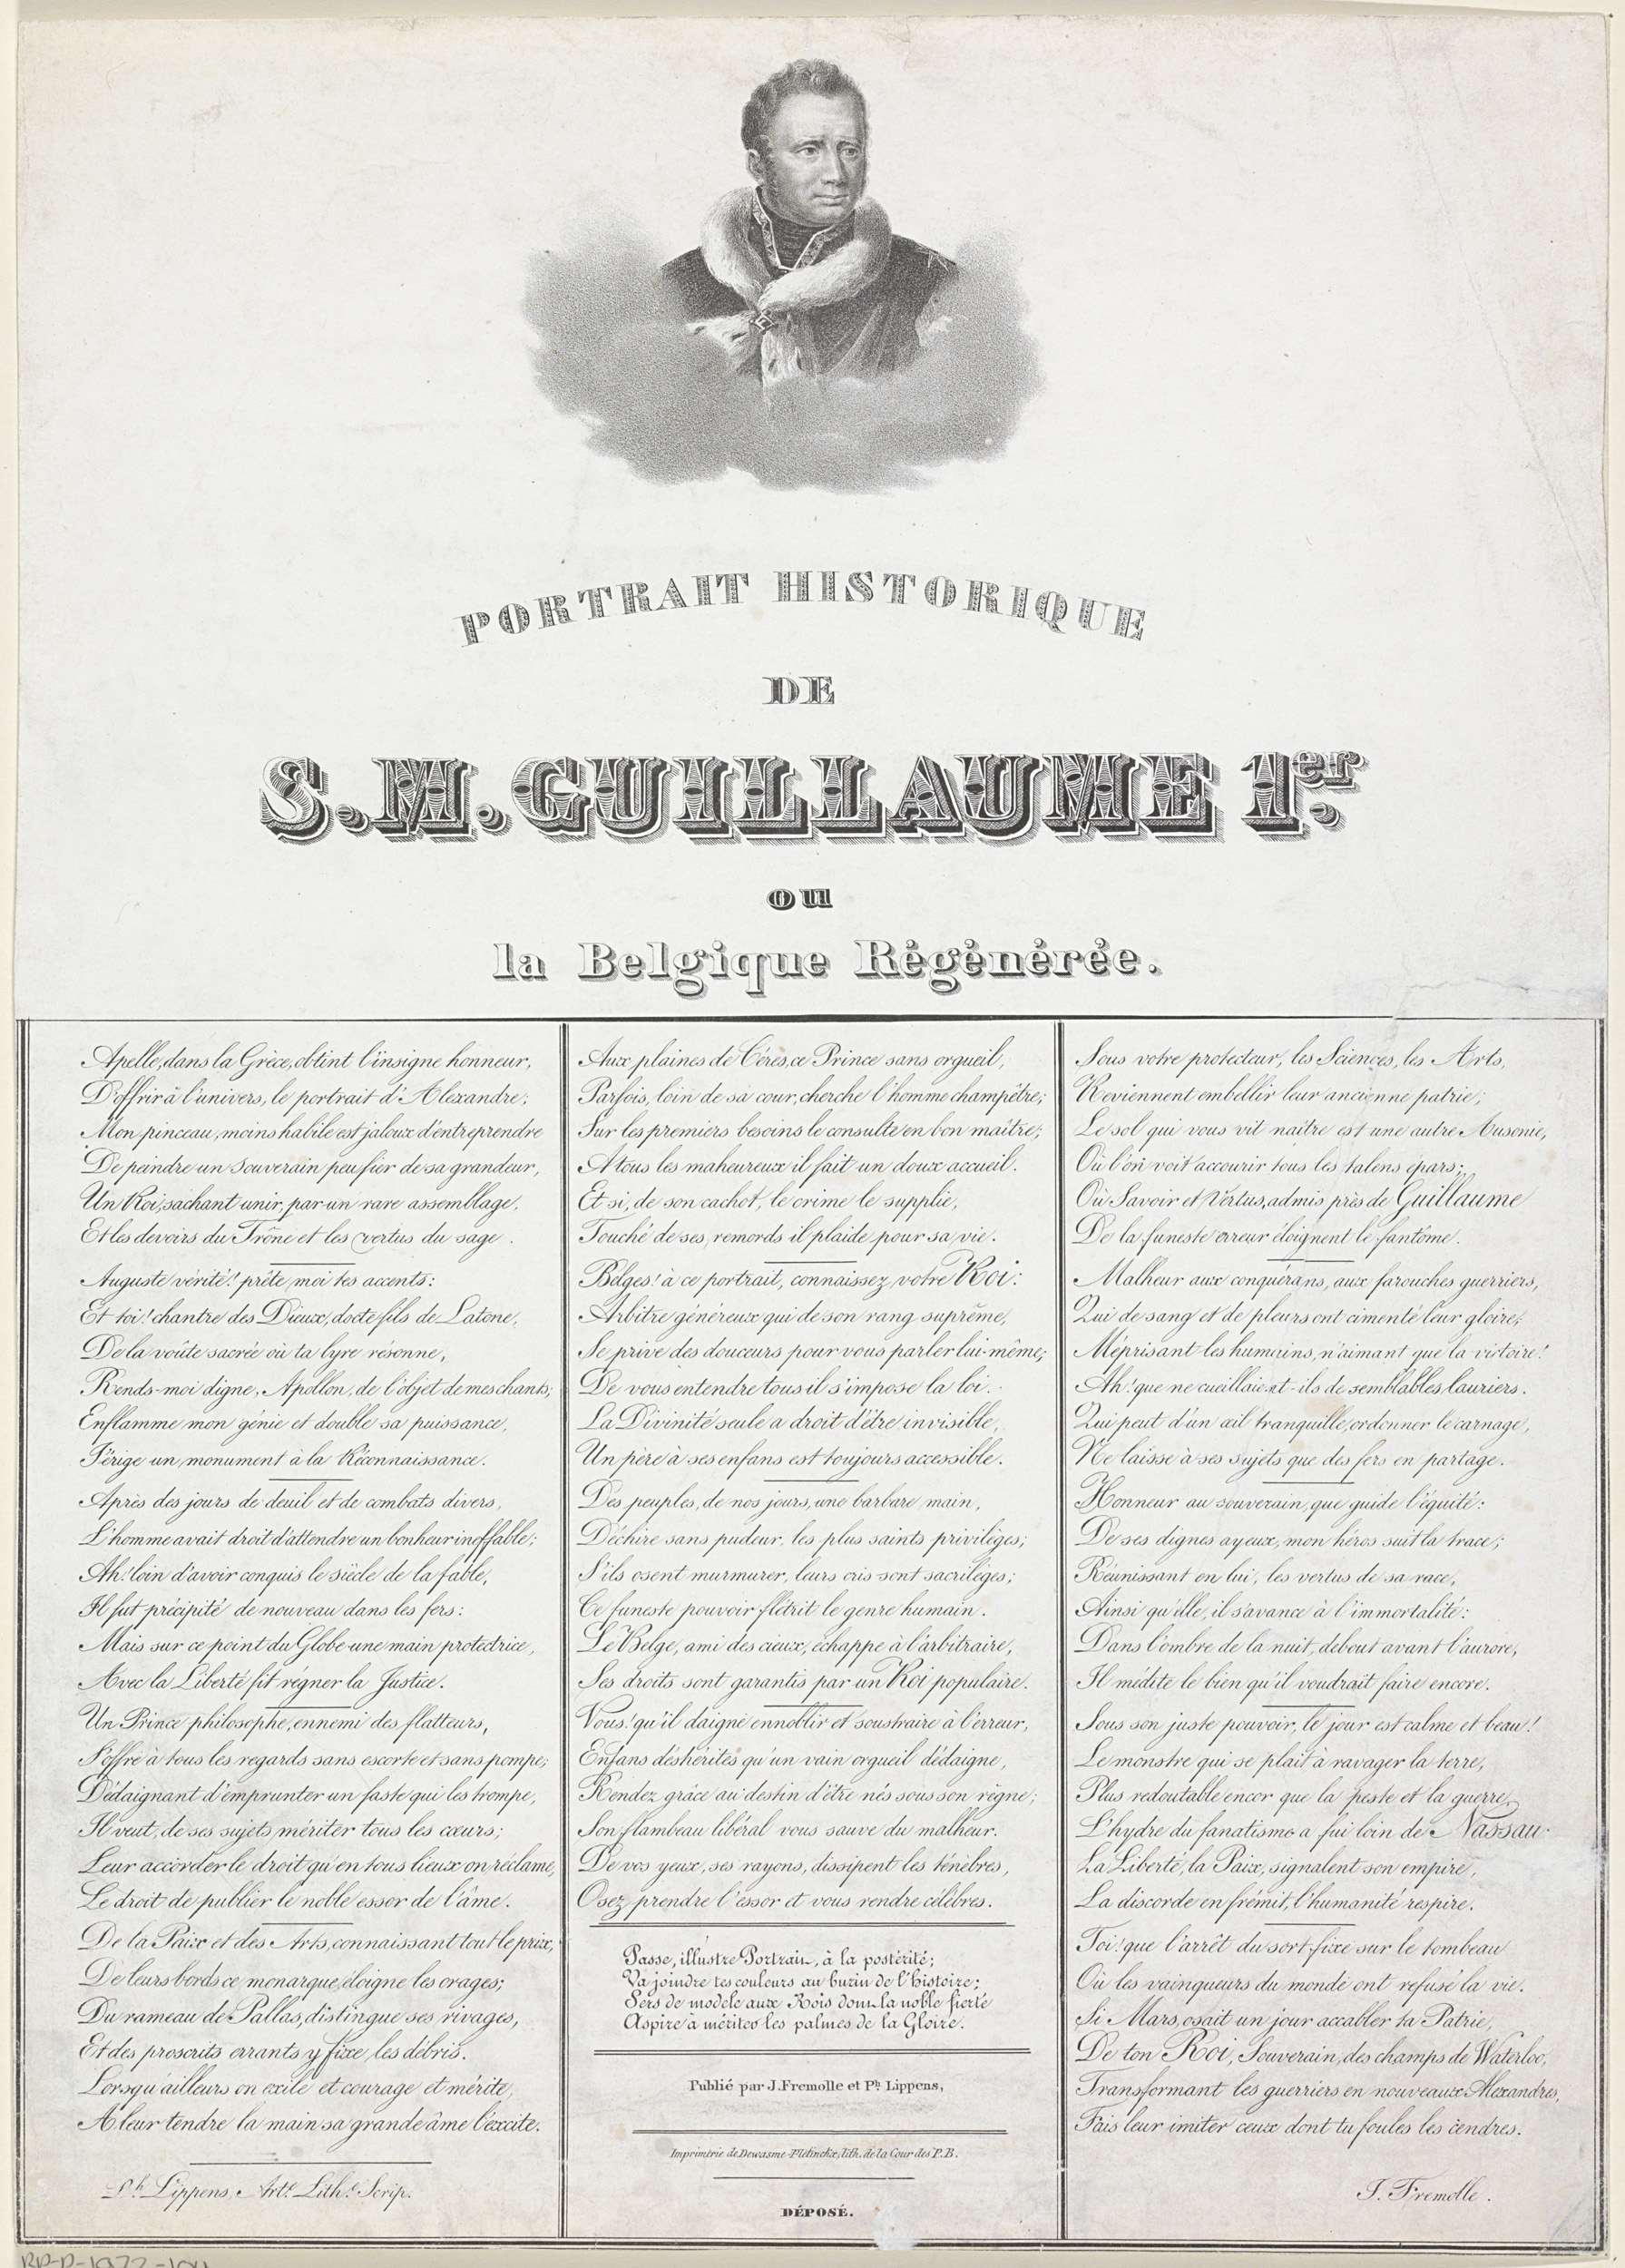 PORTRAIT HISTORIQUE
DE
S. M. GUILLAUME 1er.
ou
la Belgique Régénérée.
Apelle, dans la Grèce, obtint l'insigne honneur,
D'offrir à l'univers, le portrait d'Alexandre;
Mon pinceau, moins habile est jaloux d'entreprendre
De peindre un Souverain peu fier de sa grandeur,
Un Roi, sachant unir, par un rare assemblage,
Et les devoirs du Trône et les vertus du sage.
Auguste vérité! prête moi tes accents:
Et toi! chantre des Dieux, docte fils de Latone,
De la voûte sacrée où ta lyre résonne,
Rends-moi digne, Apollon, de l'objet de mes chants;
Enflamme mon génie et double sa puissance,
J'érige un monument à la Réconnaissance.
Après des jours de deuil et de combats divers,
L'homme avait droit d'attendre un bonheur ineffable;
Ah! loin d'avoir conquis le siècle de la fable,
Il fut précipité de nouveau dans les fers:
Mais sur ce point du Globe une main protectrice,
Avec la Liberté fit régner la Justice.
Un Prince philosophe, ennemi des flatteurs,
S'offre à tous les regards sans escorte et sans pompe;
Dédaignant d'emprunter un faste qui les trompe,
Il veut, de ses sujets mériter tous les cœurs;
Leur accorder le droit qu'en tous lieux on réclame,
Le droit de publier le noble essor de l'âme.
De la Paix et des Arts, connaissant tout le prix,
De leurs bords ce monarque, éloigne les orages;
Du rameau de Pallas, distingue ses rivages,
Et des proscrits errants y fixe les débris.
Lorsqu'ailleurs on exile et courage et mérite,
A leur tendre la main sa grande âme l'excite.
Ph. Lippens, Arte. Lithe. Scrip.
Aux plaines de Cérès, ce Prince sans orgueil,
Parfois, loin de sa cour, cherche l'homme champêtre;
Sur les premiers besoins le consulte en bon maître;
A tous les maheureux il fait un doux accueil.
Et si, de son cachot, le crime le supplie,
Touché de ses remords il plaide pour sa vie.
Belges! à ce portrait, connaissez votre Roi:
Arbitre généreux qui de son rang suprême,
Se prive des douceurs pour vous parler lui-même;
De vous entendre tous il s'impose la loi.
La Divinité seule a droit d'être invisible,
Un père à ses enfans est toujours accessible.
Des peuples, de nos jours, une barbare main,
Déchire sans pudeur, les plus saints privilèges;
S'ils osent murmurer, leurs cris sont sacrilèges;
Ce funeste pouvoir flétrit le genre humain.
Le Belge, ami des cieux, échappe à l'arbitraire,
Ses droits sont garantis par un Roi populaire.
Vous! qu'il daigne ennoblir et soustraire à l'erreur,
Enfans déshérités qu'un vain orgueil dédaigne,
Rendez grâce au destin d'être nés sous son règne;
Son flambeau libéral vous sauve du malheur.
De vos yeux, ses rayons, dissipent les ténèbres,
Osez prendre l'essor et vous rendre célèbres.
Passe, illustre Portrait, à la postérité;
Va joindre tes couleurs au burin de l'histoire;
Sers de modèle aux Rois dont la noble fierté
Aspire à mériter les palmes de la Gloire.
Publié par J. Fremolle et Ph. Lippens,
Imprimerie de Dewasme-Pletinckx, lith. de la Cour des P.B.
DÉPOSÉ.
Sous votre protecteur, les Sciences, les Arts,
Reviennent embellir leur ancienne patrie;
Le sol qui vous vit naître est une autre Ausonie,
Où l'on voit accourir tous les talens épars;
Où Savoir et Vertus, admis près de Guillaume
De la funeste erreur éloignent le fantôme.
Malheur aux conquérans, aux farouches guerriers,
Qui de sang et de pleurs ont cimenté leur gloire;
Méprisant les humains, n'aimant que la victoire!
Ah! que ne cueillaient-ils de semblables lauriers.
Qui peut d'un œil tranquille, ordonner le carnage,
Ne laisse à ses sujets que des fers en partage.
Honneur au souverain, que guide l'équité:
De ses dignes ayeux, mon héros suit la trace;
Réunissant en lui, les vertus de sa race,
Ainsi qu'elle, il s'avance à l'immortalité:
Dans l'ombre de la nuit, debout avant l'aurore,
Il médite le bien qu'il voudrait faire encore.
Sous son juste pouvoir, le jour est calme et beau!
Le monstre qui se plait à ravager la terre,
Plus redoutable encor que la peste et la guerre,
L'hydre du fanatisme a fui loin de Nassau.
La Liberté, la Paix, signalent son empire,
La discorde en frémit, l'humanité respire.
Toi! que l'arrêt du sort fixe sur le tombeau
Où les vainqueurs du monde ont refusé la vie.
Si Mars, osait un jour accabler ta Patrie,
De ton Roi, Souverain, des champs de Waterloo,
Transformant les guerriers en nouveaux Alexandres,
Fais leur imiter ceux dont tu foules les cendres.
J. Fremolle.